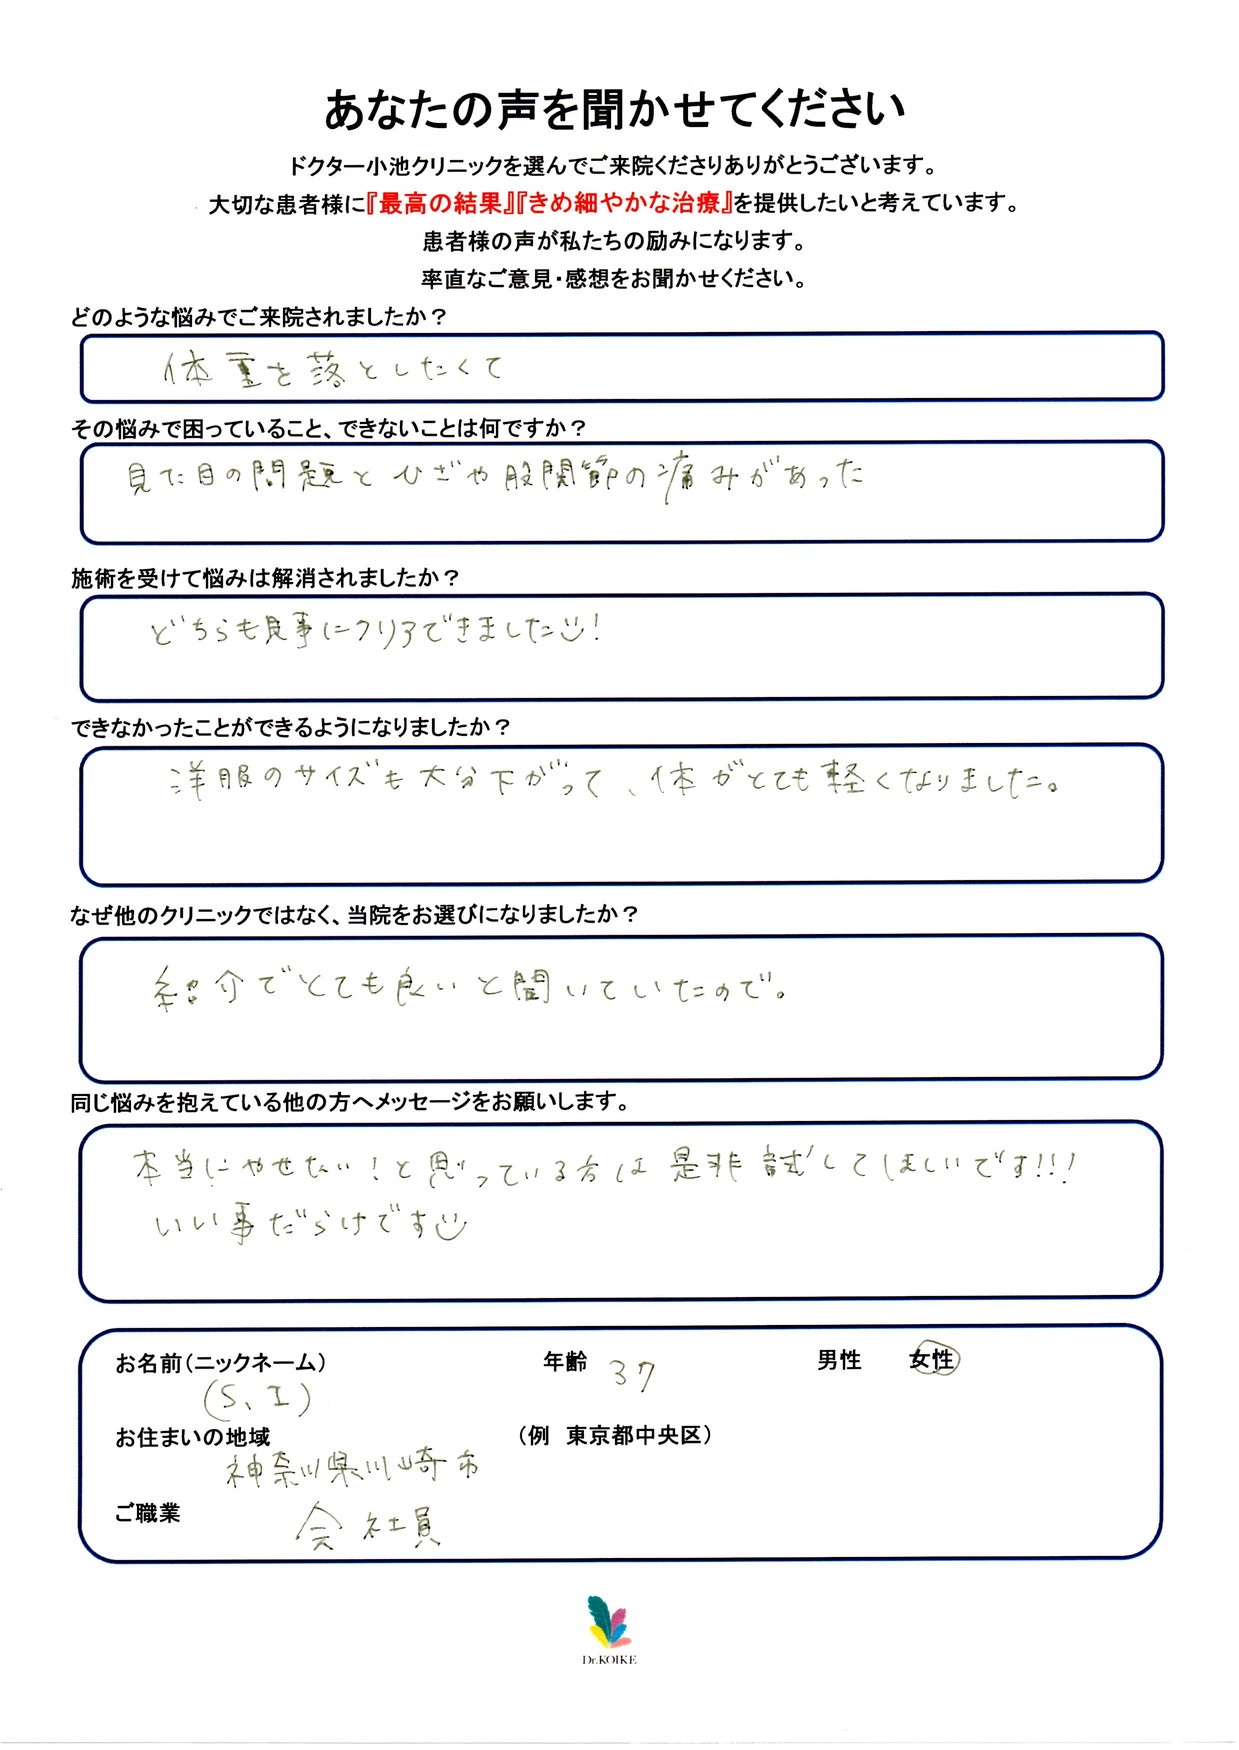 あなたの声を聞かせてください
ドクター小池クリニックを選んでご来院くださりありがとうございます。
大切な患者様に『最高の結果』『きめ細やかな治療』を提供したいと考えています。
患者様の声が私たちの励みになります。
率直なご意見・感想をお聞かせください。
どのような悩みでご来院されましたか？
体重を落としたくて
その悩みで困っていること、できないことは何ですか？
見た目の問題とひざや股関節の痛みがあった
施術を受けて悩みは解消されましたか？
どちらも見事にクリアできました!
できなかったことができるようになりましたか？
洋服のサイズも大分下がって、体がとても軽くなりました。
なぜ他のクリニックではなく、当院をお選びになりましたか？
紹介でとても良いと聞いていたので。
同じ悩みを抱えている他の方へメッセージをお願いします。
本当にやせたい！と思っている方は是非試してほしいです!!!
いい事だらけです
お名前（ニックネーム） 年齢 37 男性 女性
(S、I)
お住まいの地域 （例 東京都中央区）
神奈川県川崎市
ご職業 会社員
Dr.KOIKE